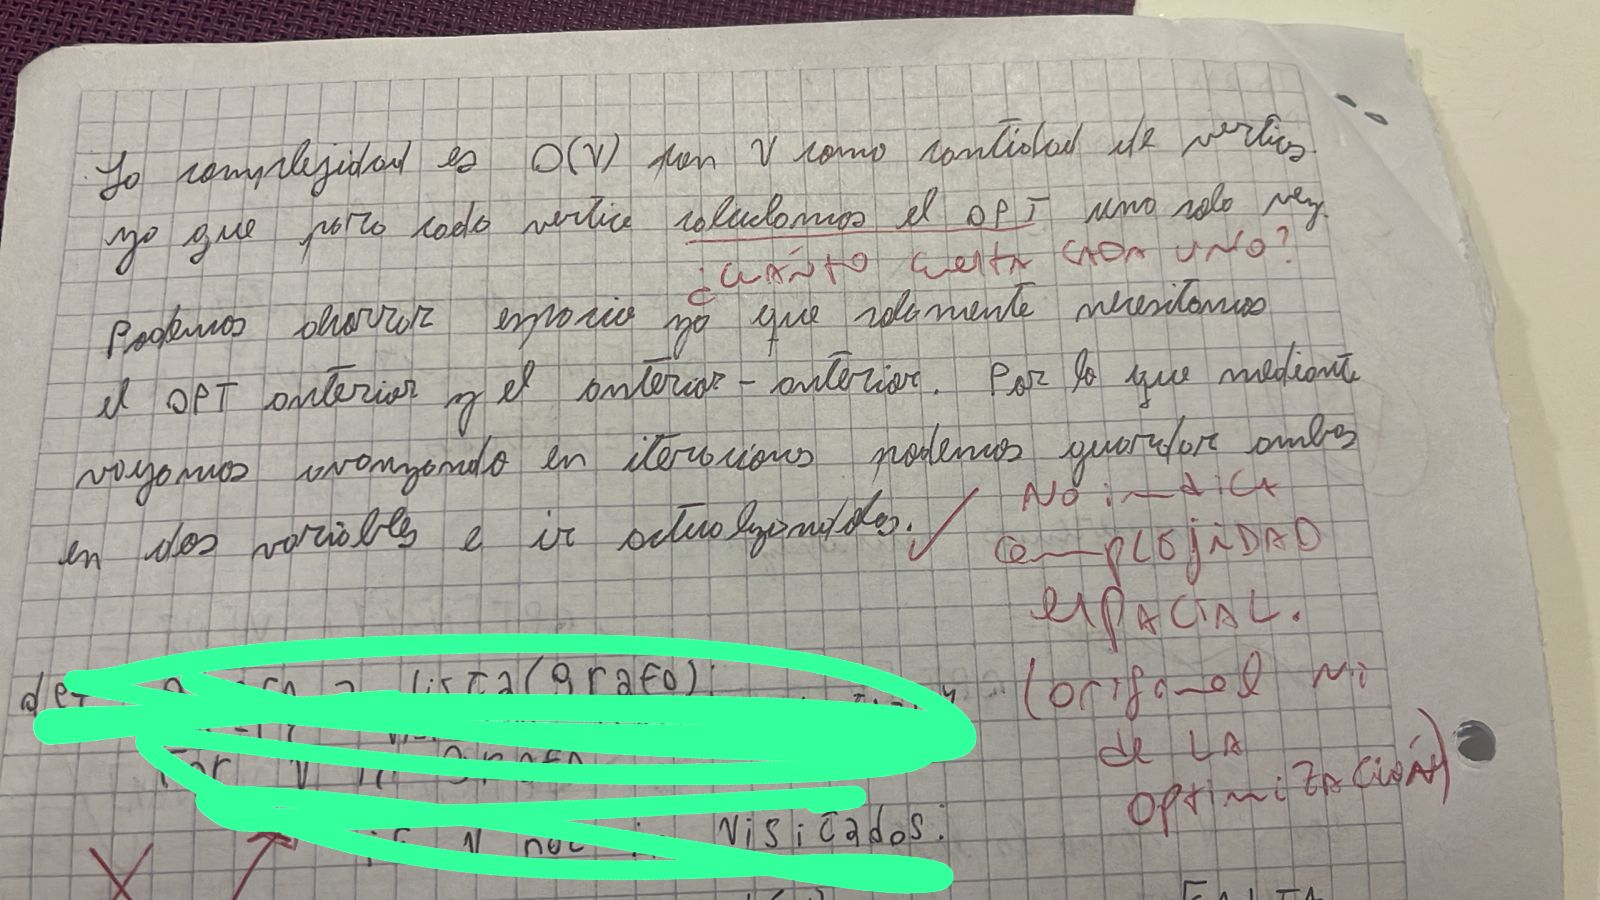 La complejidad es O(V) con V como cantidad de vertices
ya que para cada vertice calculamos el OPT una sola vez.
¿CUÁNTO CUESTA CADA UNO?
Podemos ahorrar espacio ya que solamente necesitamos
el OPT anterior y el anterior-anterior. Por lo que mediante
vayamos avanzando en iteraciones podemos guardar ambos
en dos variables e ir actualizandolos.
NO indicA
complejidAD
espACIAL.
(original ni
de LA
optimizACIÓN)
lista(grafo):
for v in grafo
if v not in visitados:
FALTA